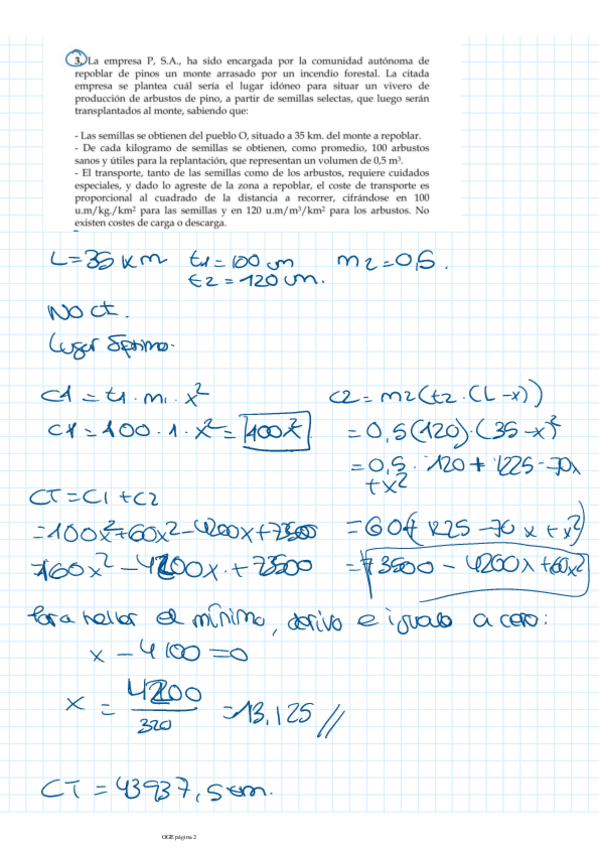 3. La empresa P, S.A., ha sido encargada por la comunidad autónoma de
repoblar de pinos un monte arrasado por un incendio forestal. La citada
empresa se plantea cuál sería el lugar idóneo para situar un vivero de
producción de arbustos de pino, a partir de semillas selectas, que luego serán
transplantados al monte, sabiendo que:
- Las semillas se obtienen del pueblo O, situado a 35 km. del monte a repoblar.
- De cada kilogramo de semillas se obtienen, como promedio, 100 arbustos
sanos y útiles para la replantación, que representan un volumen de 0,5 m³.
- El transporte, tanto de las semillas como de los arbustos, requiere cuidados
especiales, y dado lo agreste de la zona a repoblar, el coste de transporte es
proporcional al cuadrado de la distancia a recorrer, cifrándose en 100
u.m/kg./km² para las semillas y en 120 u.m/m³/km² para los arbustos. No
existen costes de carga o descarga.
L=35 km t1=100 um m2=0,5.
t2=120 um.
No ct.
Lugar óptimo.
C1 = t1 · m1 · x² C2 = m2(t2 · (L-x))
C1 = 100 · 1 · x² = 100x² = 0,5(120)·(35-x)²
= 0,5 · 120 + 1225 - 70x
+ x²
CT = C1 + C2
= 100x² + 60x² - 4200x + 73500 = 60 (1225 - 70x + x²)
160x² - 4200x + 73500 = 73500 - 4200x + 60x²
Para hallar el mínimo, derivo e igualo a cero:
x - 4100 = 0
x = 4200/320 = 13,125 //
CT = 43937,5 um.
OGE página 2